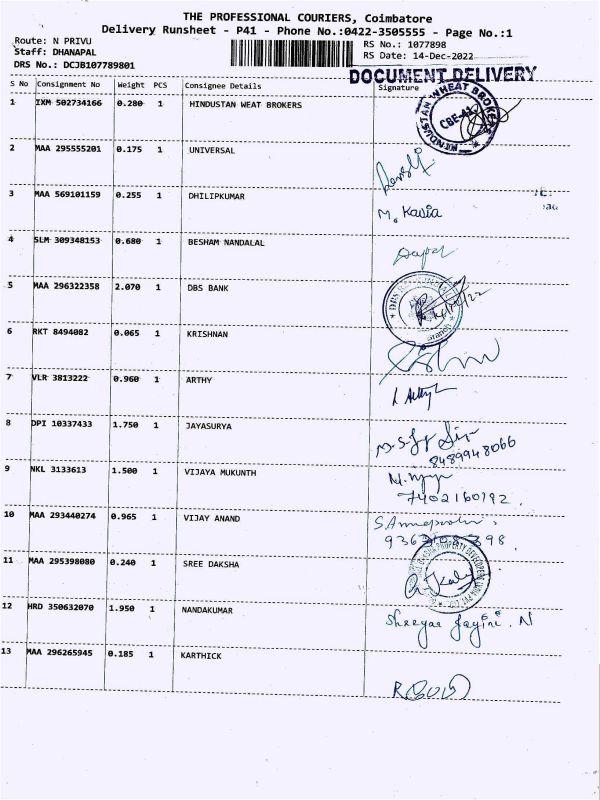 THE PROFESSIONAL COURIERS, Coimbatore
Delivery Runsheet - P41 - Phone No.:0422-3505555 - Page No.:1
Route: N PRIVU
Staff: DHANAPAL
DRS No.: DCJB107789801
RS No.: 1077898
RS Date: 14-Dec-2022
DOCUMENT DELIVERY
S No Consignment No Weight PCS Consignee Details Signature
1 IXM 502734166 0.280 1 HINDUSTAN WEAT BROKERS
HINDUSTAN WHEAT BROKERS
CBE-41
2 MAA 295555201 0.175 1 UNIVERSAL
3 MAA 569101159 0.255 1 DHILIPKUMAR
M. Kavia
4 SLM 309348153 0.680 1 BESHAM NANDALAL
5 MAA 296322358 2.070 1 DBS BANK
6 RKT 8494082 0.065 1 KRISHNAN
7 VLR 3813222 0.960 1 ARTHY
8 DPI 10337433 1.750 1 JAYASURYA
8489948066
9 NKL 3133613 1.500 1 VIJAYA MUKUNTH
7402160192
10 MAA 293440274 0.965 1 VIJAY ANAND
11 MAA 295398080 0.240 1 SREE DAKSHA
12 HRD 350632070 1.950 1 NANDAKUMAR
13 MAA 296265945 0.185 1 KARTHICK